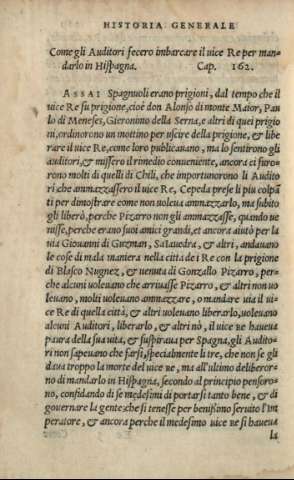 HISTORIA GENERALE
Come gli Auditori fecero imbarcare il uice Re per man-
darlo in Hispagna. Cap. 162.
ASSAI Spagnuoli erano prigioni, dal tempo che il
uice Re fu prigione, cioè don Alonso di monte Maior, Pau
lo di Meneses, Gieronimo della Serna, e altri di quei prigio
ni, ordinorono un mottino per uscire della prigione, & libe
rare il uice Re, come loro publicauano, ma lo sentirono gli
auditori, & missero il rimedio conueniente, ancora ci furo-
rono molti di quelli di Chili, che importunorono li Audito
ri che ammazzassero il uice Re, Cepeda prese li piu colpā
ti per dimostrare come non uoleua ammazzarlo, ma subito
gli liberò, perche Pizarro non gli ammazzasse, quando ue
nisse, perche erano suoi amici grandi, et ancora aiutò per la
uia Giouanni di Guzman, Saiauedra, & altri, andauano
le cose di mala maniera nella città de i Re con la prigione
di Blasco Nugnez, & uenuta di Gonzallo Pizarro, per-
che alcuni uoleuano che arriuasse Pizarro, & altri non uo
leuano, molti uoleuano ammazzare, o mandare uia il ui-
ce Re di quella città, & altri uoleuano liberarlo, uoleuano
alcuni Auditori, liberarlo, & altri nò, il uice Re haueua
paura della sua uita, & suspiraua per Spagna, gli Audito-
ri non sapeuano che farsi, specialmente li tre, che non se gli
daua troppo la morte del uice Re, ma all'ultimo deliberor-
no di mandarlo in Hispagna, secondo al principio pensoro-
no, confidando di se medesimi di portarsi tanto bene, & di
gouernare la gente che si tenesse per benissimo seruito l'im
peratore, & ancora perche il medesimo uice Re si haueua
la